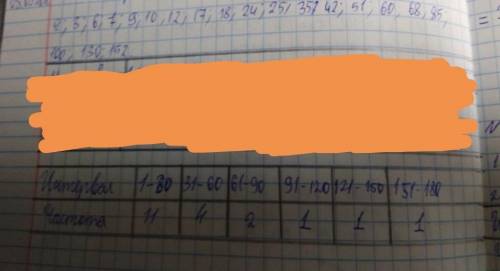 2, 3, 6, 7, 9, 10, 12, 17, 18, 24, 25, 35, 42, 51, 60, 68, 85,
100, 130, 152
Интервал 1-30 31-60 61-90 91-120 121-150 151-180
Частота 11 4 2 1 1 1